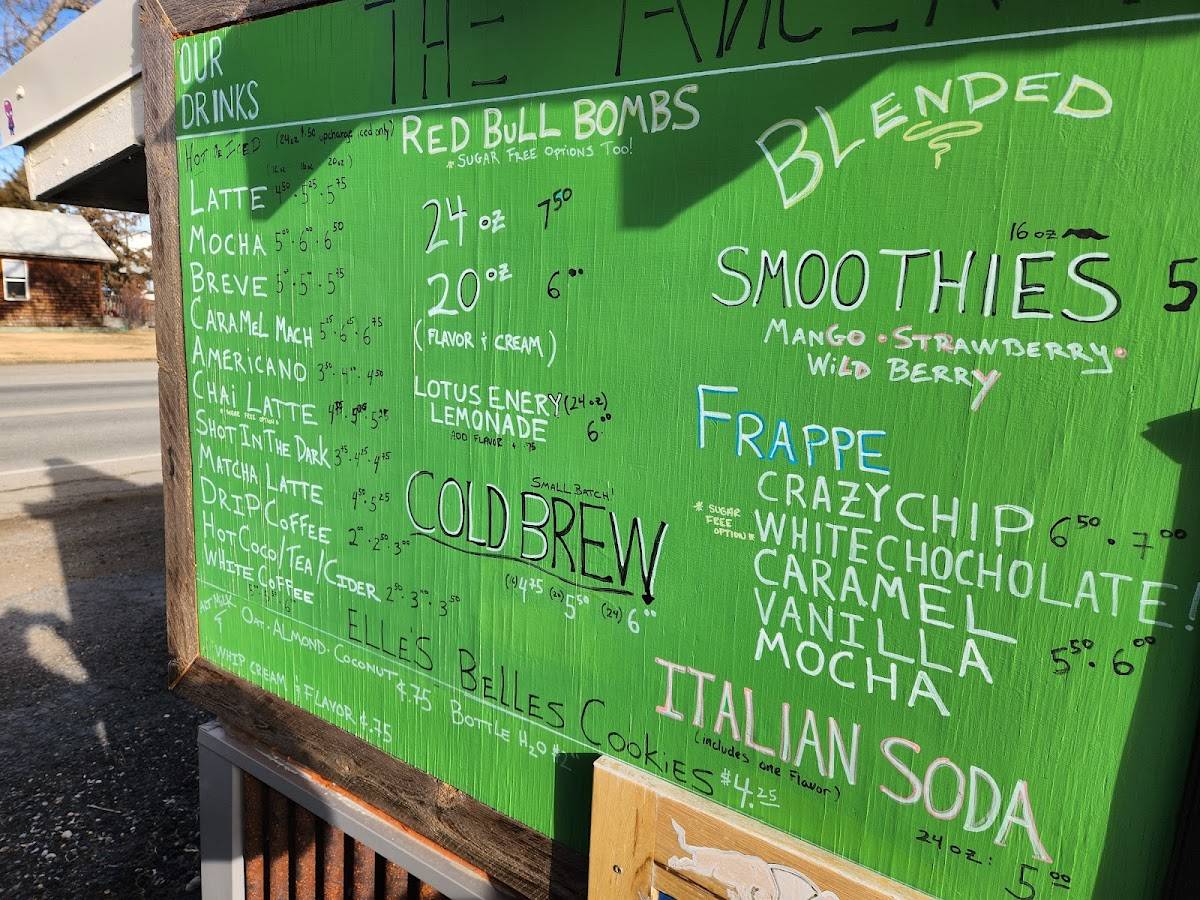 THE
OUR
DRINKS
HOT OR ICED (24oz $.50 upcharge iced only)
(12oz 16oz 20oz)
LATTE 4.50 · 5.25 · 5.75
MOCHA 5.00 · 6.00 · 6.50
BREVE
CARAMEL MACH 5.25 · 6.25 · 6.75
AMERICANO 3.50 · 4.00 · 4.50
CHAI LATTE
* SUGAR FREE OPTION *
SHOT IN THE DARK 3.75 · 4.25 · 4.75
MATCHA LATTE 4.50 · 5.25
DRIP COFFEE 2.00 · 2.50 · 3.00
HOT COCO/TEA/CIDER 2.50 · 3.00 · 3.50
WHITE COFFEE
ALT MILK
OAT · ALMOND · COCONUT $.75
WHIP CREAM & FLAVOR $.75
BOTTLE H2O
ELLE'S BELLES COOKIES $4.25
RED BULL BOMBS
* SUGAR FREE OPTIONS TOO!
24 oz 7.50
20 oz 6.00
(FLAVOR & CREAM)
LOTUS ENERY (24oz)
LEMONADE 6.00
ADD FLAVOR + .75
SMALL BATCH!
COLD BREW
(16) 4.75 (20) 5.50 (24) 6.00
BLENDED
16oz
SMOOTHIES 5
MANGO · STRAWBERRY ·
WILD BERRY
FRAPPE
CRAZY CHIP 6.50 · 7.00
* SUGAR FREE OPTION *
WHITECHOCHOLATE!
CARAMEL
VANILLA 5.50 · 6.00
MOCHA
ITALIAN SODA
(includes one flavor)
24oz: 5.00